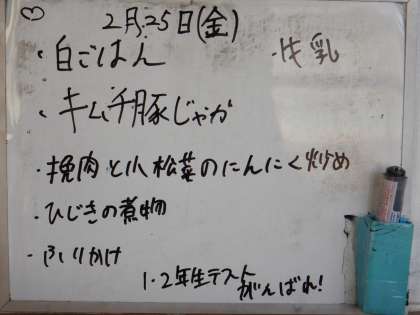 2月25日(金)
・白ごはん
・牛乳
・キムチ豚じゃが
・挽肉と小松菜のにんにく炒め
・ひじきの煮物
・ふりかけ
1・2年生テスト
がんばれ!